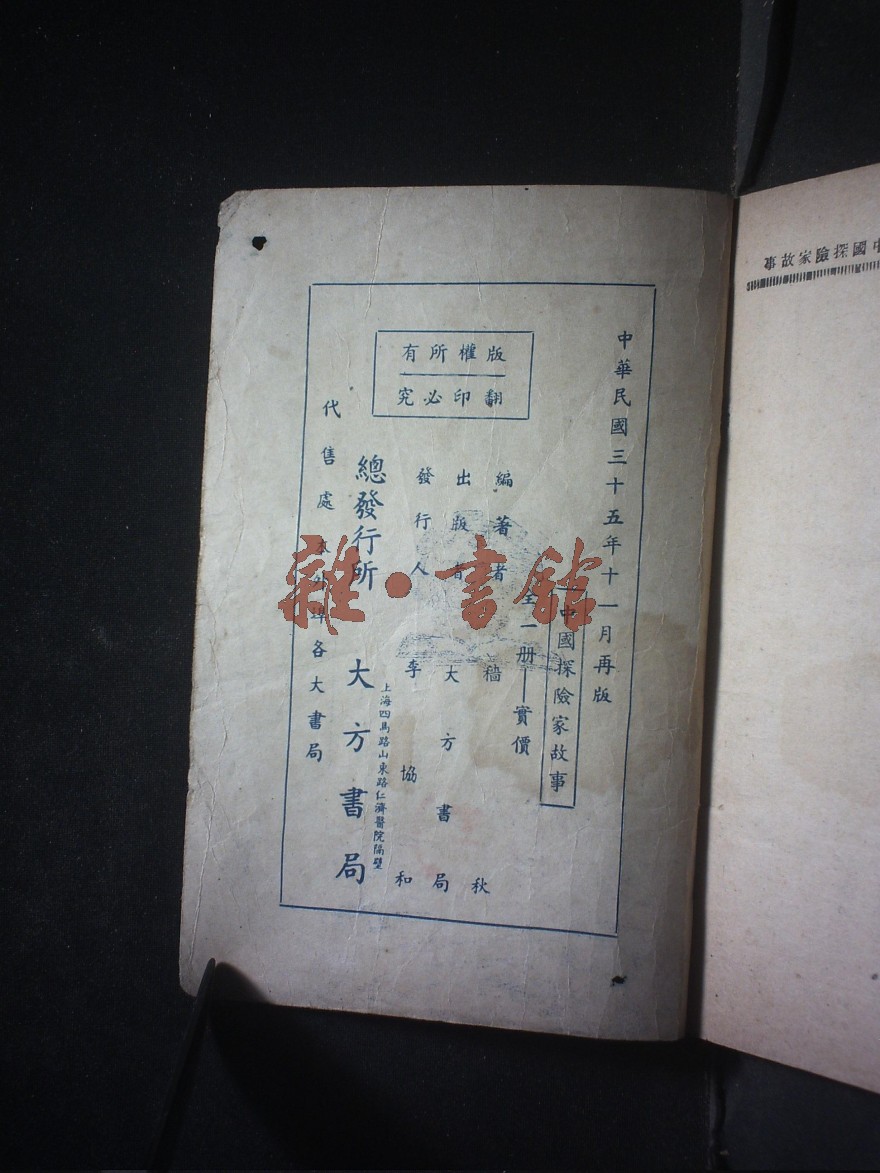 中國探險家故事
中華民國三十五年十一月再版
中國探險家故事
全一册——實價
編著者 穡秋
出版者 大方書局
發行人 李協和
版權所有
翻印必究
上海四馬路山東路仁濟醫院隔壁
總發行所 大方書局
代售處 本外埠各大書局
雜·書館